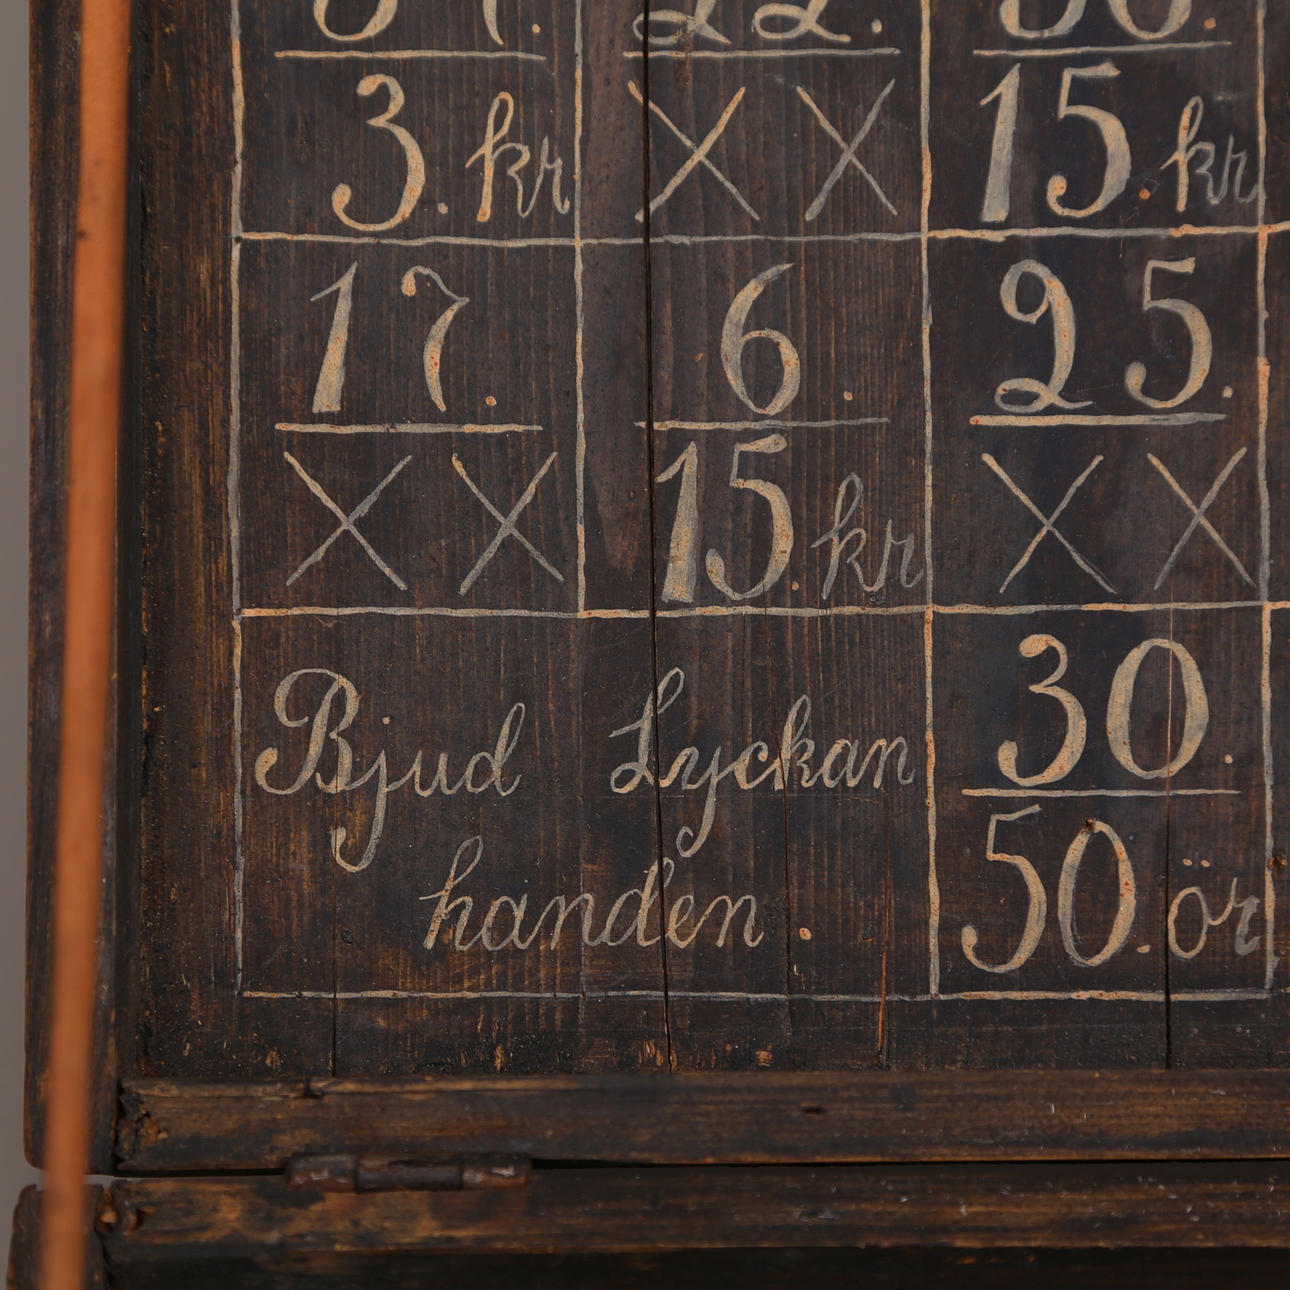 22. 
3. kr X X 15. kr
17. 6. 25.
X X 15. kr X X
Bjud Lyckan 30.
handen. 50. ör